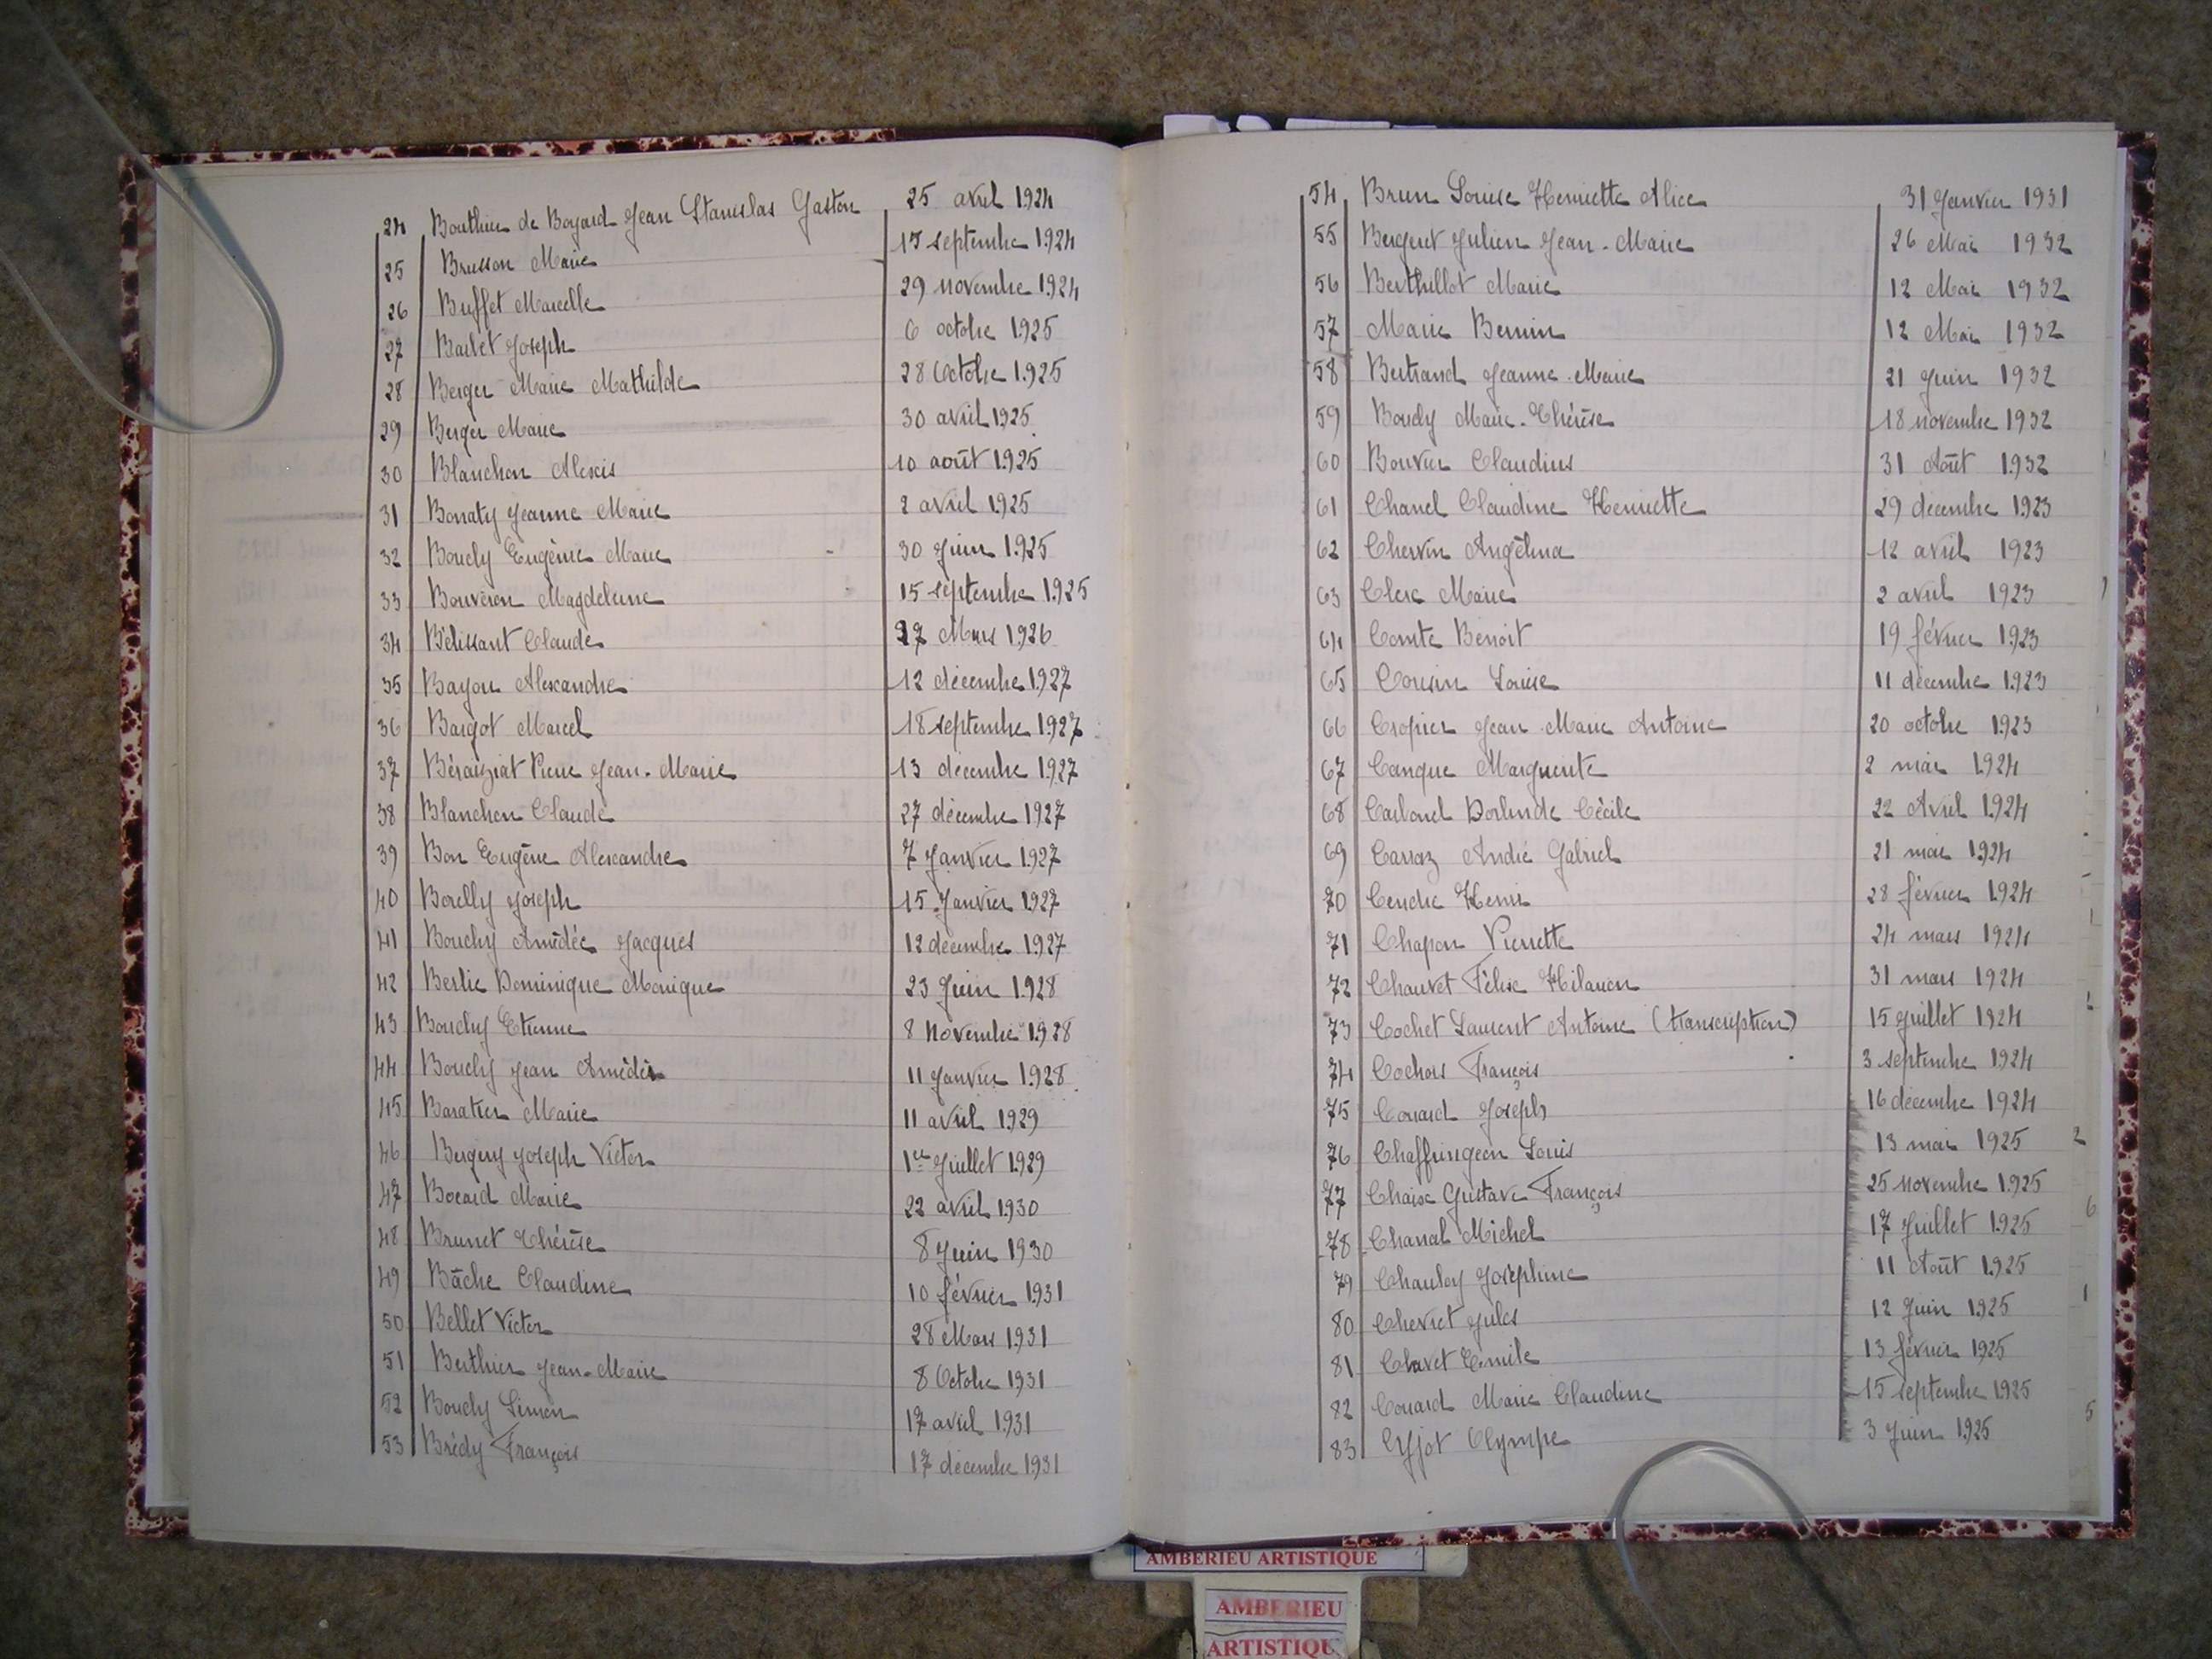 24 Bouthier de Boyard Jean Stanislas Gaston 25 avril 1924
25 Brusson Marie 17 septembre 1924
26 Buffet Marcelle 29 novembre 1924
27 Barlet Joseph 6 octobre 1925
28 Berger Marie Mathilde 28 Octobre 1925
29 Berger Marie 30 avril 1925
30 Blanchon Alexis 10 août 1925
31 Bonaty Jeanne Marie 2 avril 1925
32 Boucly Eugène Marie 30 Juin 1925
33 Bouveron Magdeleine 15 septembre 1925
34 Bélissant Claude 27 Mars 1926
35 Bayou Alexandre 12 décembre 1927
36 Bargot Marcel 18 septembre 1927
37 Béraiziat Pierre Jean-Marie 13 décembre 1927
38 Blanchon Claude 27 décembre 1927
39 Bon Eugène Alexandre 7 Janvier 1927
40 Borelly Joseph 15 Janvier 1927
41 Bouchy Amédée Jacques 12 décembre 1927
42 Berlie Dominique Monique 23 Juin 1928
43 Bouchy Etienne 8 Novembre 1928
44 Boucly Jean Amédée 11 Janvier 1928
45 Baratier Marie 11 avril 1929
46 Buguy Joseph Victor 1er Juillet 1929
47 Bocard Marie 22 avril 1930
48 Brunet Thérèse 8 Juin 1930
49 Bâche Claudine 10 février 1931
50 Bellet Victor 28 Mars 1931
51 Berthier Jean-Marie 8 Octobre 1931
52 Boucly Simon 17 avril 1931
53 Brédy François 17 décembre 1931
54 Brun Louise Henriette Alice 31 Janvier 1931
55 Berguet Julien Jean-Marie 26 Mai 1932
56 Berthillot Marie 12 Mai 1932
57 Marie Bernin 12 Mai 1932
58 Bertrand Jeanne-Marie 21 Juin 1932
59 Boucly Marie-Thérèse 18 novembre 1932
60 Bouvier Claudius 31 Août 1932
61 Chanel Claudine Henriette 29 décembre 1923
62 Chervin Angélina 12 avril 1923
63 Clerc Marie 2 avril 1923
64 Comte Benoit 19 février 1923
65 Cousin Louise 11 décembre 1923
66 Cropier Jean Marie Antoine 20 octobre 1923
67 Canque Marguerite 2 mai 1924
68 Carbonel Dorlinde Cécile 22 Avril 1924
69 Carraz André Gabriel 21 mai 1924
70 Cendre Henri 28 février 1924
71 Chapon Pierrette 24 mars 1924
72 Chauvet Félix Hilarion 31 mars 1924
73 Cochet Laurent Antoine (transcription) 15 juillet 1924
74 Cochois François 3 septembre 1924
75 Couard Joseph 16 décembre 1924
76 Chaffringeon Louis 13 mai 1925
77 Chaise Gustave François 25 novembre 1925
78 Chanal Michel 17 Juillet 1925
79 Chauley Joséphine 11 Août 1925
80 Chevret Jules 12 Juin 1925
81 Clavet Emile 13 février 1925
82 Couard Marie Claudine 15 septembre 1925
83 Cyjot Olympe 3 Juin 1925
AMBERIEU ARTISTIQUE
AMBERIEU
ARTISTIQU